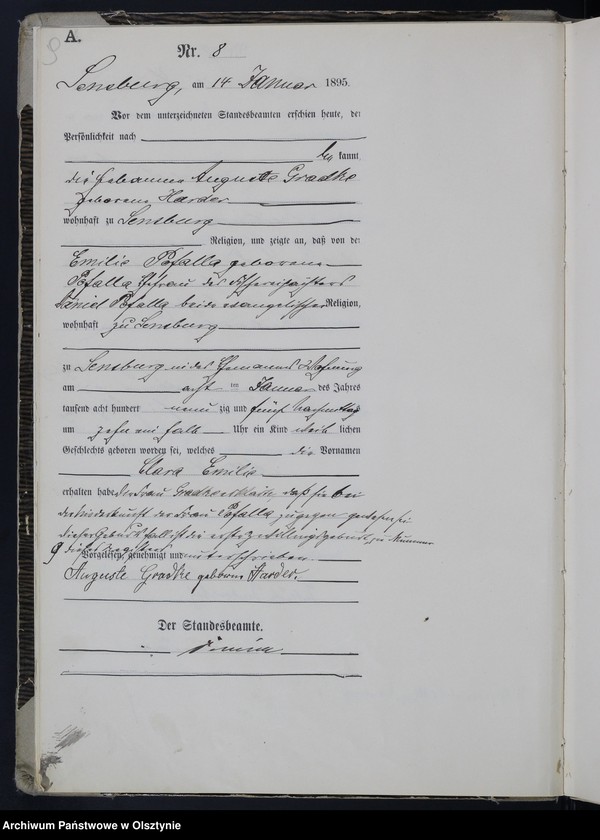 A.
Nr. 8
Sensburg, am 14 Januar 1895.
Vor dem unterzeichneten Standesbeamten erschien heute, der
Persönlichkeit nach
be kannt,
die Hebamme Auguste Gradke
geborene Harder
wohnhaft zu Sensburg
Religion, und zeigte an, daß von der
Emilie Pofalla geborenen
Pofalla Ehefrau des Fischereipächters
Daniel Pofalla beide evangelischer Religion,
wohnhaft zu Sensburg
zu Sensburg in des Ehemanns Wohnung
am acht ten Januar des Jahres
tausend acht hundert neun zig und fünf Nachmittags
um zehn ein halb Uhr ein Kind weib lichen
Geschlechts geboren worden sei, welches die Vornamen
Clara Emilie
erhalten habe. Die Frau Gradke erklärte, daß sie bei
der Niederkunft der Frau Pofalla zugegen gewesen sei
dieser Geburtsfall ist die erste Zwillingsgeburt, zu Nummer
9 dieses Registers
Vorgelesen, genehmigt und unterschrieben
Auguste Gradke geborene Harder.
Der Standesbeamte.
Archiwum Państwowe w Olsztynie